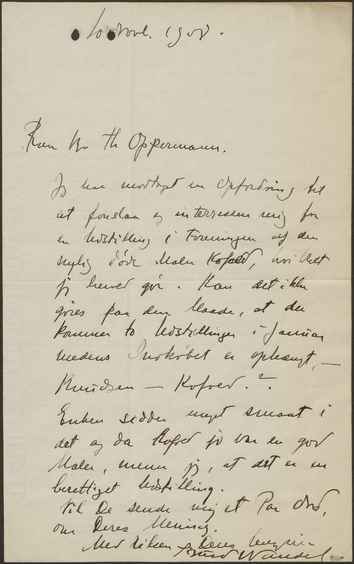 10 Novbr. 1908.
Kære Hr Th Oppermann.
Jeg har modtaget en Opfordring til
at foreslaa og interessere mig for
en Udstilling i Foreningen af den
nylig døde Maler Kofoed, hvilket
jeg herved gør. Kan det ikke
gøres paa den Maade, at der
kommer to Udstillinger i Januar
medens Indkøbet er ophængt, —
Knudsen — Kofoed.?.
Enken sidder meget smaat i
det og da Kofoed jo var en god
Maler, mener jeg, at det er en
berettiget Udstilling.
Vil De sende mig et Par Ord,
om Deres Mening.
Med Hilsen Deres hengivne
Sigurd Wandel